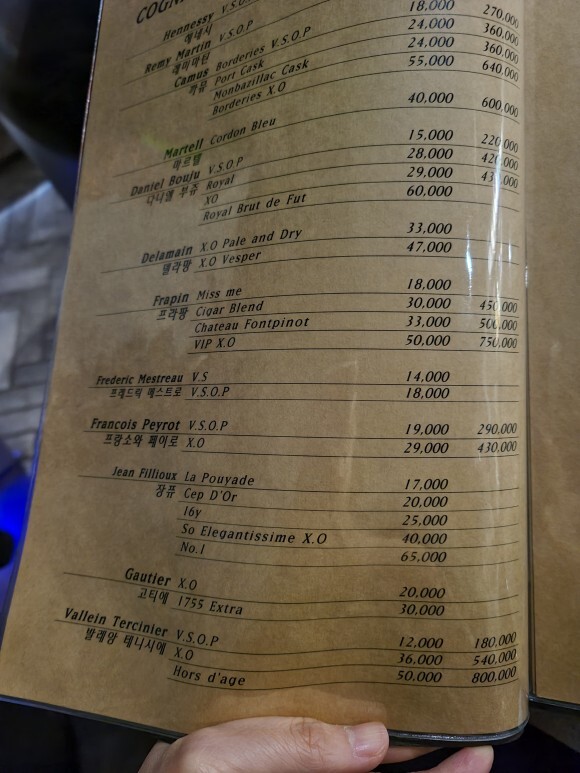 COGN
Hennessy V.S.O
헤네시
Remy Martin V.S.O.P
레미마틴
Camus Borderies V.S.O.P 18,000 270,000
까뮤 Port Cask 24,000 360,000
Monbazillac Cask 24,000 360,000
Borderies X.O 55,000 640,000
Martell Cordon Bleu 40,000 600,000
마르텔
Daniel Bouju V.S.O.P 15,000 220,000
다니엘 부쥬 Royal 28,000 420,000
XO 29,000 430,000
Royal Brut de Fut 60,000
Delamain X.O Pale and Dry 33,000
델라망 X.O Vesper 47,000
Frapin Miss me 18,000
프라팡 Cigar Blend 30,000 450,000
Chateau Fontpinot 33,000 500,000
VIP X.O 50,000 750,000
Frederic Mestreau V.S 14,000
프레드릭 메스트로 V.S.O.P 18,000
Francois Peyrot V.S.O.P 19,000 290,000
프랑소와 페이로 X.O 29,000 430,000
Jean Fillioux La Pouyade 17,000
장퓨 Cep D'Or 20,000
16y 25,000
So Elegantissime X.O 40,000
No.1 65,000
Gautier X.O 20,000
고티에 1755 Extra 30,000
Vallein Tercinier V.S.O.P 12,000 180,000
발레앙 테니시에 X.O 36,000 540,000
Hors d'age 50,000 800,000